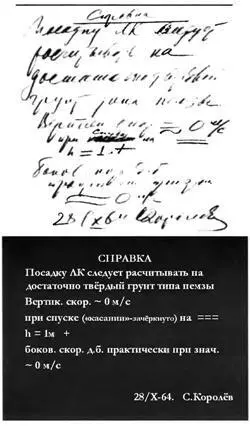 Справка
Посадку ЛК следует
расчитывать на
достаточно твёрдый
грунт типа пемзы
Вертик. ско ≈ 0 м/с
при
h = 1 +
боков
≈ 0 м/с
28/X-64 Королёв
СПРАВКА
Посадку ЛК следует расчитывать на
достаточно твёрдый грунт типа пемзы
Вертик. скор. ~ 0 м/с
при спуске («осасании»-зачёркнуто) на ===
h = 1м +
боков. скор. д.б. практически при знач.
~ 0 м/с
28/X-64. С.Королёв